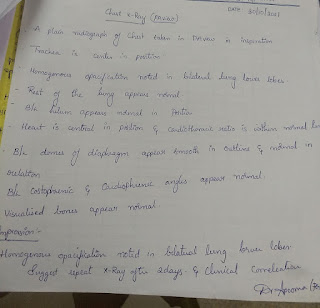 Chest X-Ray (PAview)
DATE
- A plain radiograph of Chest taken in PAview in inspiration
- Trachea is center in position
- Homogenous opacification noted in bilateral lung lower lobes
- Rest of the lung appears normal
- B/L hilum appears normal in Position
- Heart is central in position & Cardiothoracic ratio is within normal
B/L domes of diaphragm appear smooth in outline & normal in
B/L Costophrenic & Cardiophrenic angles appear normal.
Visualised bones appear normal.
Impression:-
Homogenous opacification noted in bilateral lung lower lobes
Suggest repeat X-Ray after 2 days & Clinical Correlation